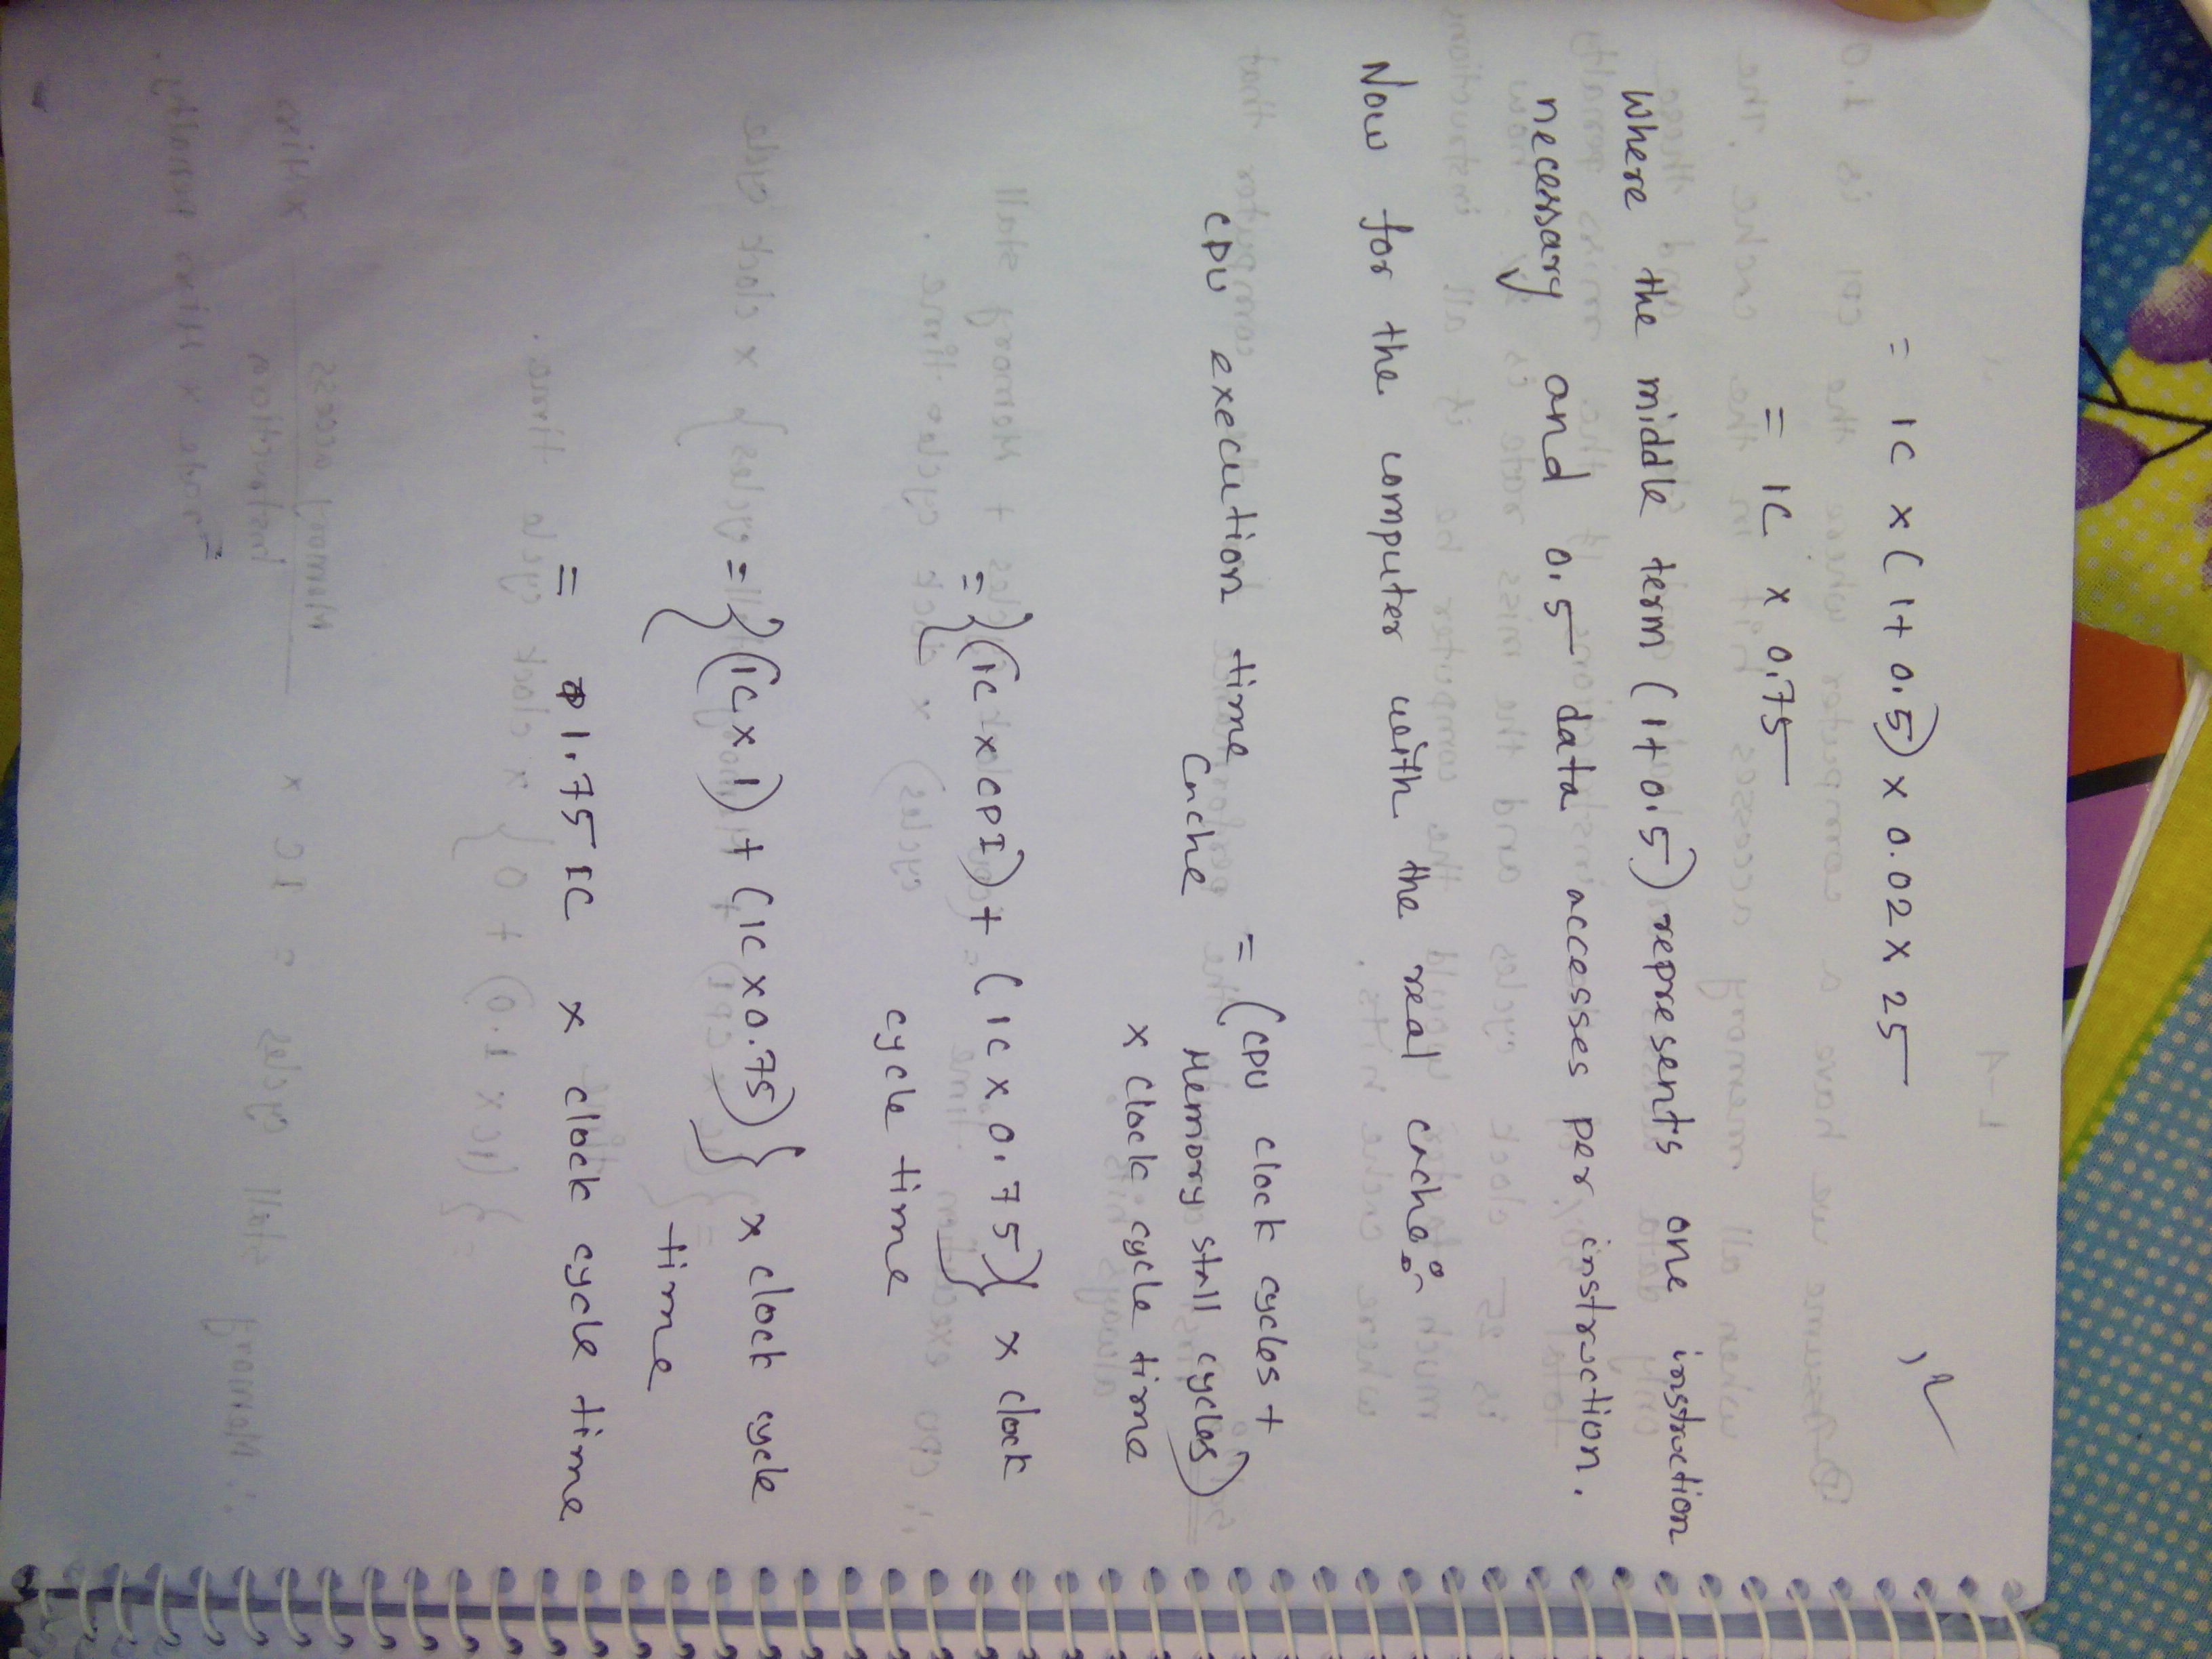 = IC × (1+0.5) × 0.02 × 25
= IC × 0.75
Where the middle term (1+0.5) represents one instruction
necessary and 0.5 data accesses per instruction.
Now for the computer with the real cache:-
CPU execution time Cache = (CPU clock cycles +
Memory stall cycles)
× Clock cycle time
= {(IC × CPI) + (IC × 0.75)} × clock
cycle time
= {(IC × 1) + (IC × 0.75)} × clock cycle
time
= 1.75 IC × clock cycle time